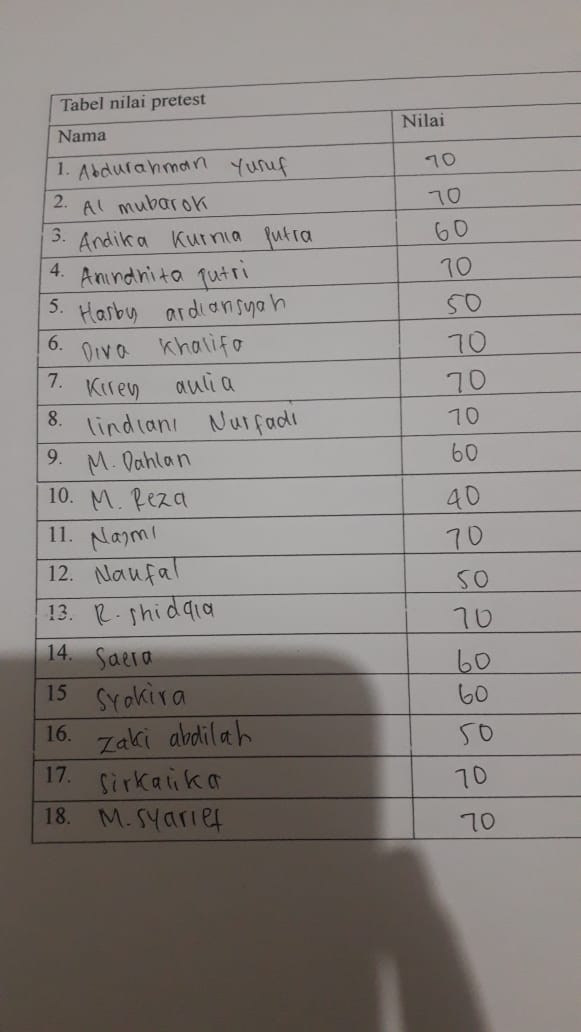 Tabel nilai pretest
Nama Nilai
1. Abdurahman Yusuf 70
2. Al mubarok 70
3. Andika Kurnia putra 60
4. Anindhita putri 70
5. Hasby ardiansyah 50
6. Diva Khalifa 70
7. Kirey aulia 70
8. lindiani Nurfadi 70
9. M. Dahlan 60
10. M. Reza 40
11. Najmi 70
12. Naufal 50
13. R. shidqia 70
14. Saera 60
15 Syakira 60
16. Zaki abdilah 50
17. 70
18. M. Syarief 70